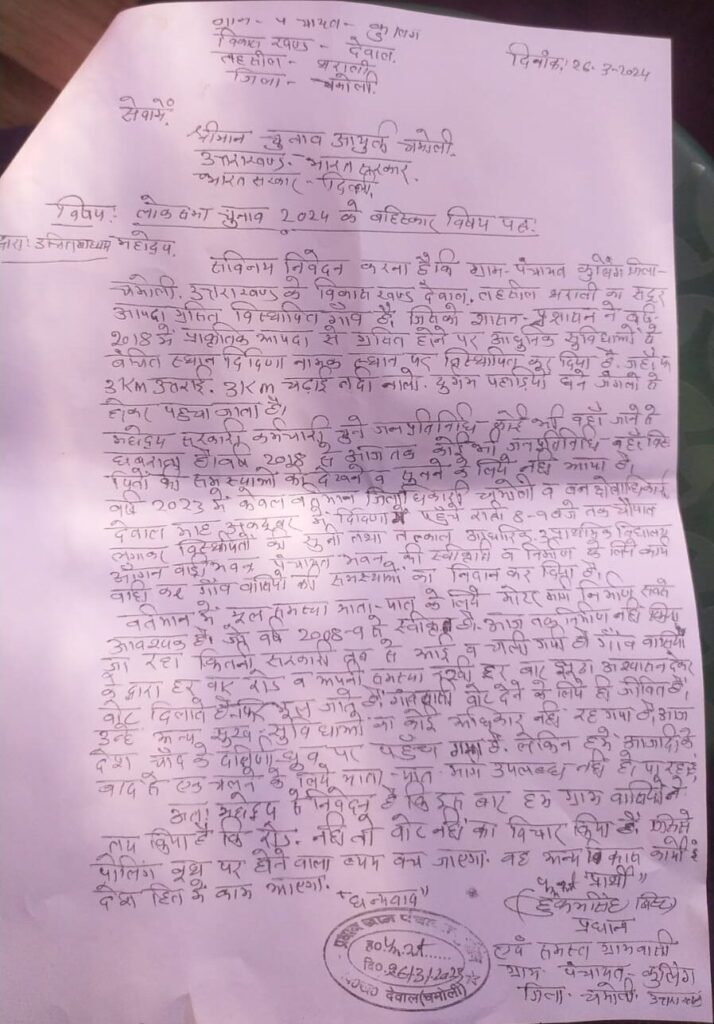 ग्राम - पंचायत - कुलिंग
विकास खण्ड - देवाल.
तहसील - थराली
जिला - चमोली.
दिनांक: 26-3-2024
सेवामें,
श्रीमान चुनाव आयुक्त चमोली.
उत्तराखण्ड - भारत सरकार.
भारत सरकार - दिल्ली,
विषय: लोकसभा चुनाव 2024 के बहिस्कार विषयक
द्वारा: उचित माध्यम महोदय,
सविनय निवेदन करना है कि ग्राम-पंचायत कुलिंग जिला-
चमोली. उत्तराखण्ड के विकास खण्ड देवाल. तहसील थराली का सुदूर
आपदा ग्रसित विस्थापित गांव है, जिसको शासन-प्रशासन ने वर्ष
2018 में प्राकृतिक आपदा से ग्रसित होने पर आधुनिक सुविधाओं से
वंचित स्थान दिदिणा नामक स्थान पर विस्थापित कर दिया है. जहाँ कि
3 Km उतराई. 3 Km चढ़ाई नदी नालो. दुर्गम पहाड़ियो घने जंगलो से
होकर पहुचा जाता है।
महोदय सरकारी कर्मचारी चुने जनप्रतिनिधि कोई भी वहाँ जाने से
घबराता है। वर्ष 2018 से आजतक कोई भी जनप्रतिनिधि
की समस्याओं को देखने व सुनने के लिये नही आया है,
वर्ष 2023 में केवल वर्तमान जिलाधिकारी चमोली व
देवाल माह अक्टूबर में दिदिणा में पहुँचे रात्री 8-9 बजे तक चौपाल
लगाकर विस्थापितो को सुना तथा तत्काल प्राथमिक विद्यालय
आंगन वाड़ी भवन पंचायत भवन की स्वीकृति व निर्माण के लिये कार्य
वाही कर गाँव वासियो की समस्याओं का निदान कर दिया है,
वर्तमान में मूल समस्या यातायात के लिये मोटर मार्ग निर्माण
आवश्यक है। जो वर्ष 2008-9 से स्वीकृत है. आज तक निर्माण नही किया
जा रहा कितनी सरकारी तब से आई व चली गयी है गाँव वासियो
के द्वारा हर वार रोड व अपनी समस्या रखी हर बार झूठा आश्वासन देकर
वोट दिलाते है फिर भूल जाते है, वोट देने के लिये ही जीवित है,
उन्हे अन्य सुख-सुविधाओं का कोई अधिकार नही रह गया है, आज
देश चाँद के दक्षिणी ध्रुव पर पहुँच गया है. लेकिन हमें आजादी के
बाद से चलने के लिये यातायात मार्ग उपलब्ध नही हो पा रहा है
अतः महोदय से निवेदन है कि इस बार हम ग्राम वासियो ने
तय किया है कि रोड. नही तो वोट नही का विचार किया है, जिससे
पोलिंग बूथ पर होने वाला व्यय बच जाएगा. वह अन्य विकाय कार्यो में
देश हित में काम आएगा.
"धन्यवाद"
"प्रार्थी"
(हुकमसिंह बिष्ट)
प्रधान
एवं समस्त ग्रामवासी
ग्राम पंचायत - कुलिंग
जिला - चमोली उत्तराखण्ड
प्रधान ग्राम पंचायत
ह०
दि० 26/3/2023
देवाल (चमोली)